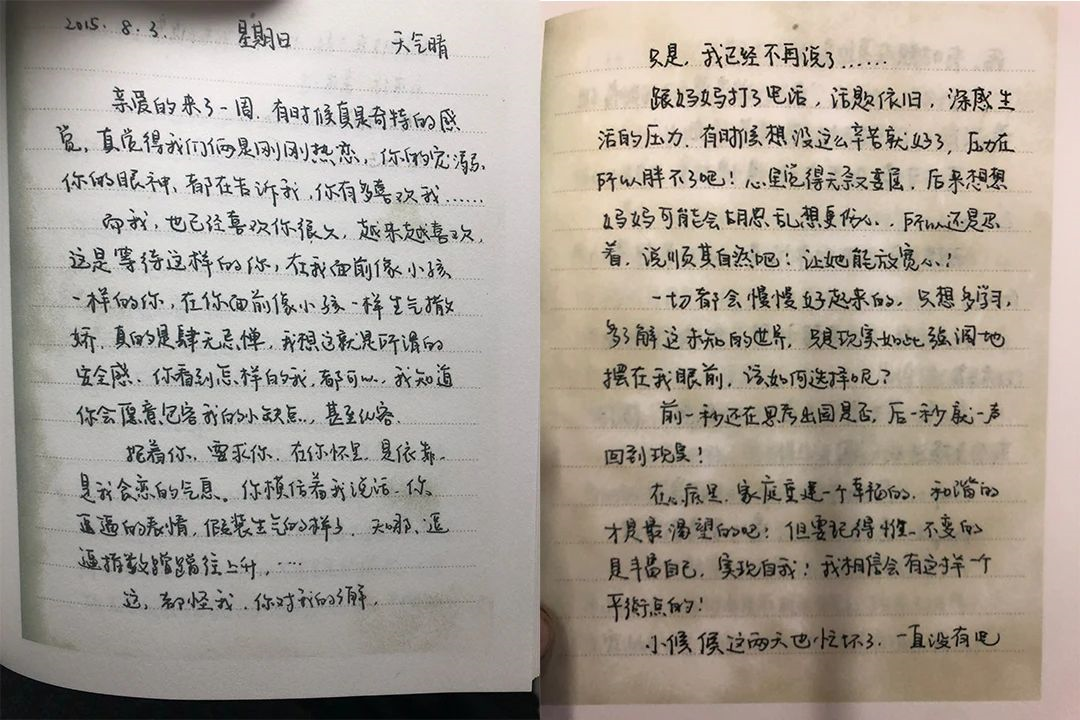 2015. 8. 3. 星期日 天气晴
亲爱的来了一周，有时候真是奇特的感
觉，真觉得我们俩是刚刚热恋，你的宠溺，
你的眼神，都在告诉我，你有多喜欢我……
而我，也已经喜欢你很久，越来越喜欢，
这是等待这样的你，在我面前像小孩
一样的你，在你面前像小孩一样生气撒
娇，真的是肆无忌惮，我想这就是所谓的
安全感，你看到怎样的我，都可以，我知道
你会愿意包容我的小缺点，甚至纵容。
抱着你，要求你，在你怀里，是依靠，
是我贪恋的气息。你模仿着我说话，你
逗逼的表情，假装生气的样子，天哪，逗
逼指数蹭蹭往上升，…
这，都怪我，你对我的了解，
只是，我已经不再说了……
跟妈妈打了电话，话题依旧，深感生
活的压力，有时候想没这么辛苦就好了，压力在
所以胖不了吧！心里觉得
妈妈可能会胡思乱想更伤心，所以还是忍
着，说顺其自然吧！让她能放宽心！
一切都会慢慢好起来的，只想多学习，
多了解这未知的世界，只是现实如此强调地
摆在我眼前，该如何选择呢？
前一秒还在思考出国是否，后一秒就一声
回到现实！
在心底里，家庭重建一个幸福的，和谐的
才是最渴望的吧；但要记得惟一不变的
是丰富自己，实现自我；我相信会有这样一个
平衡点的！
小候候这两天也忙坏了，一直没有电